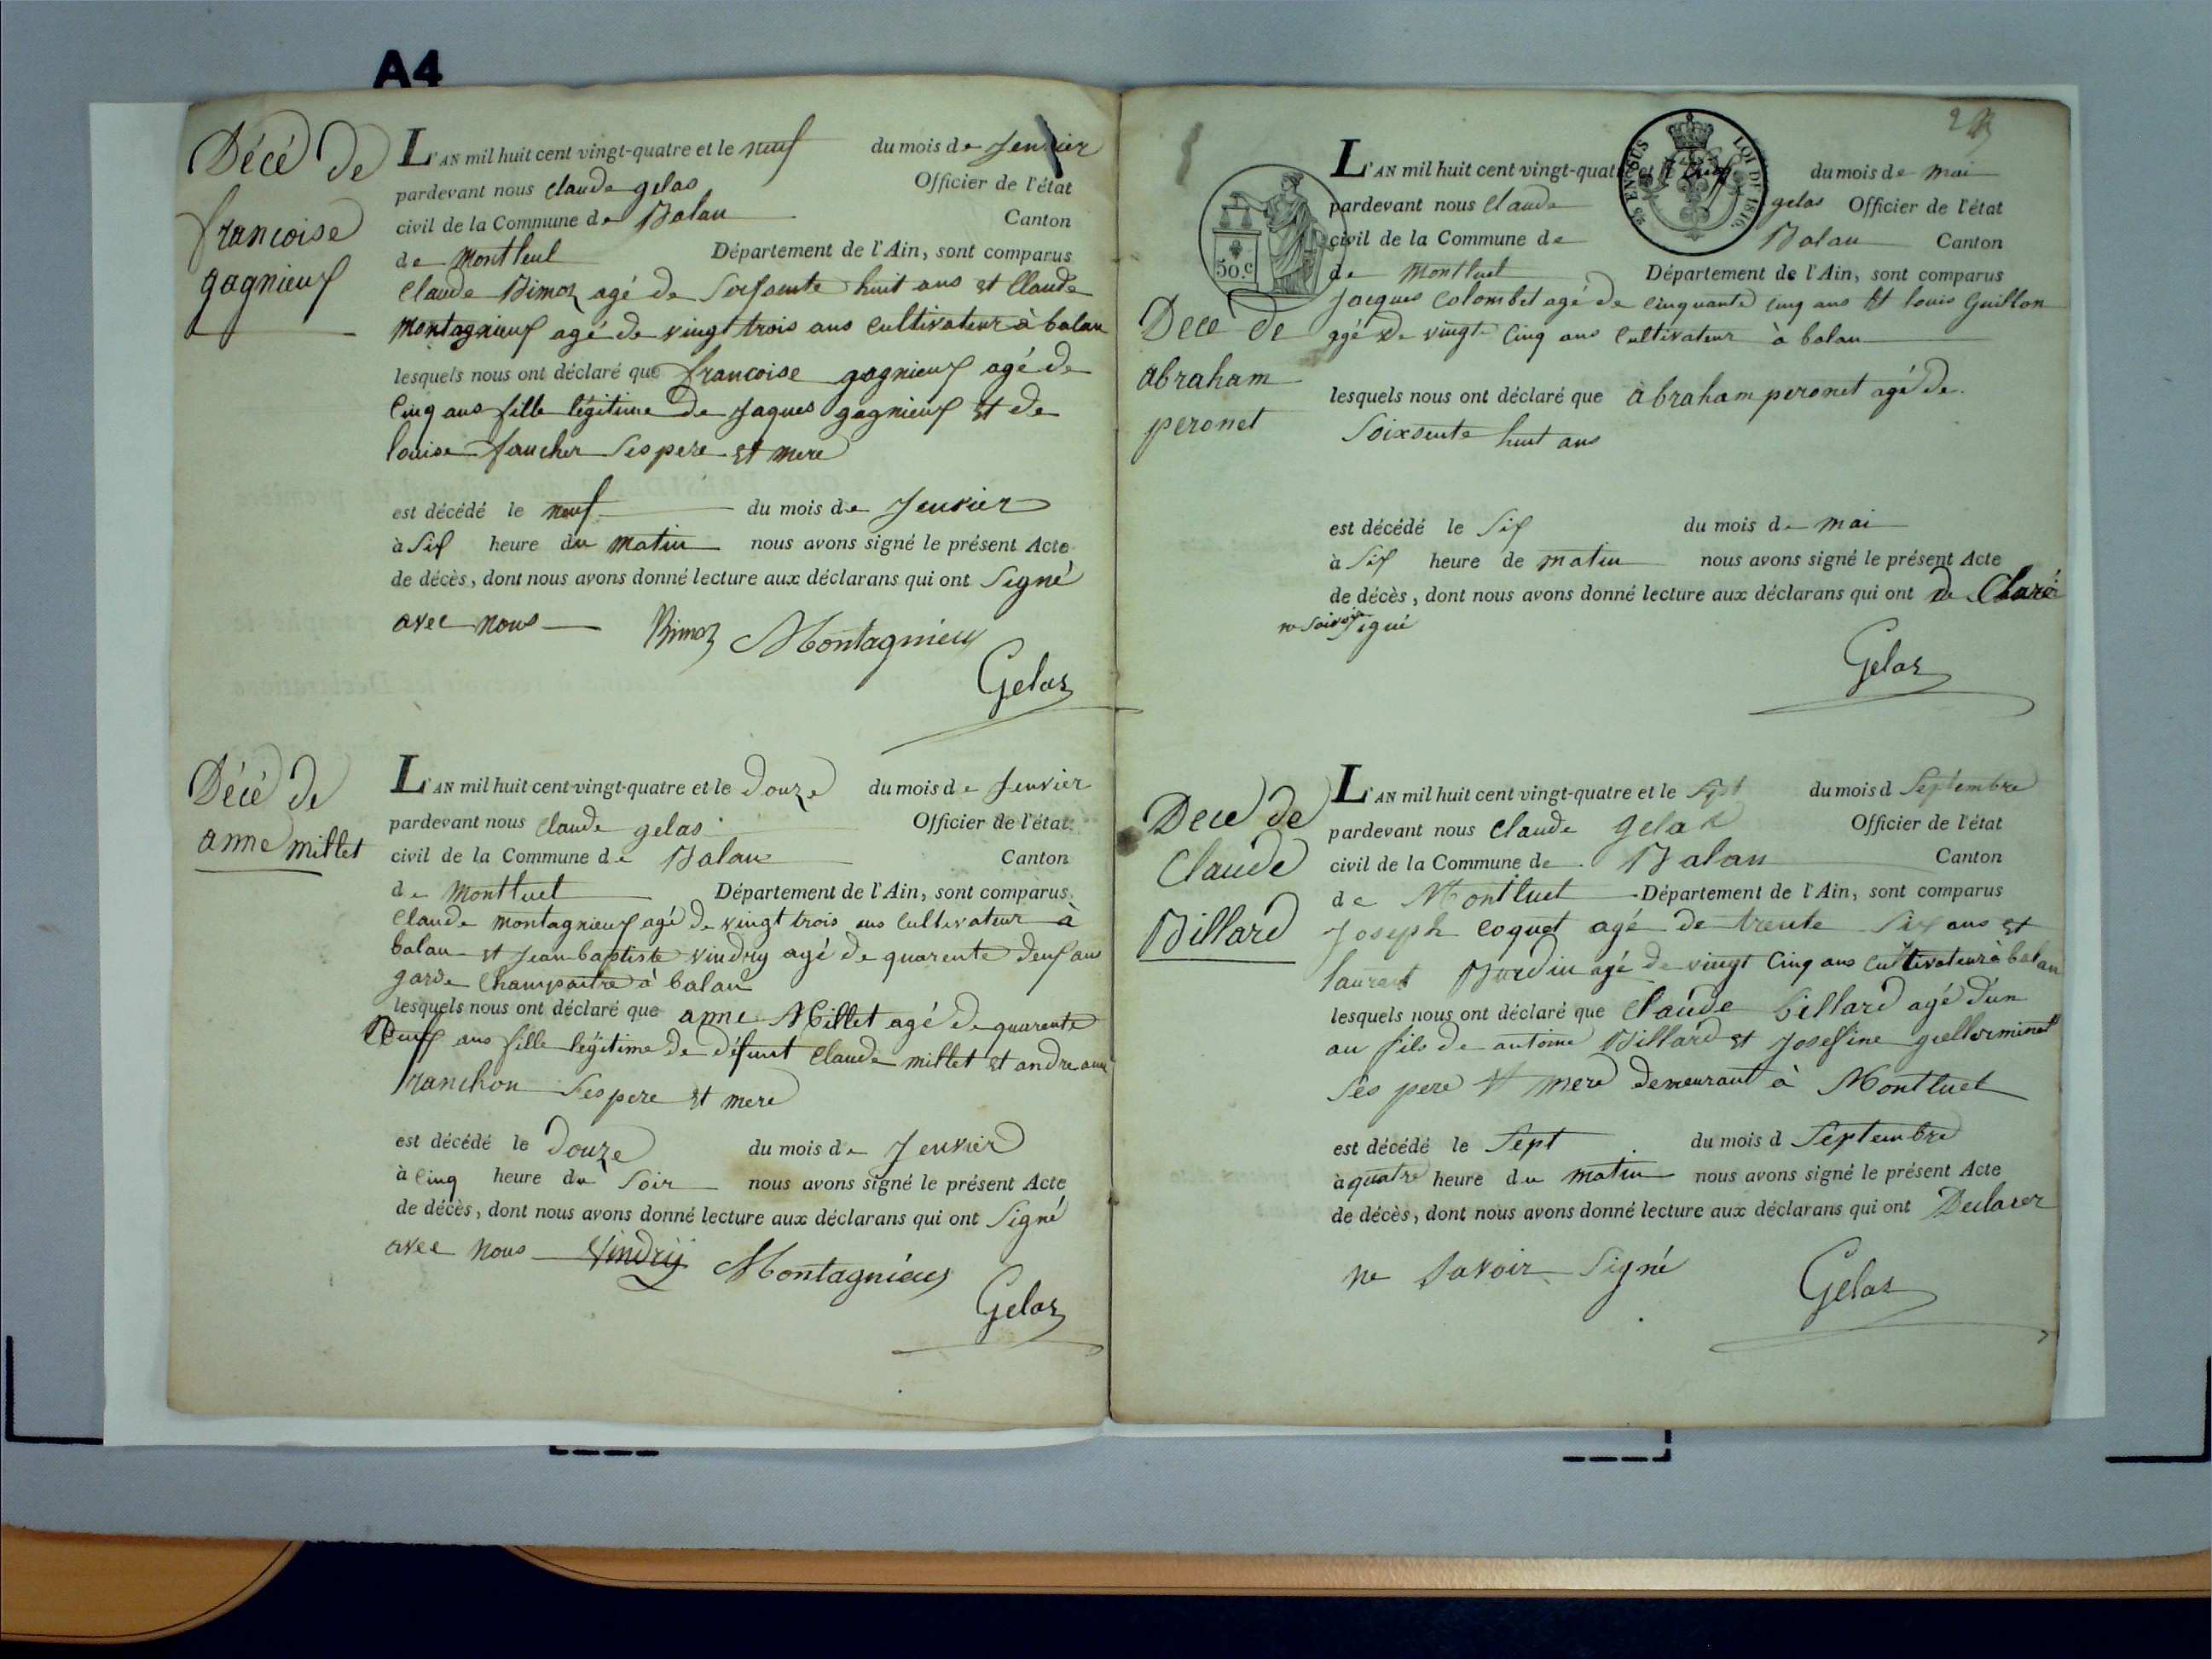 A4
Décé de
francoise
gagnieux
L'AN mil huit cent vingt-quatre et le neuf du mois de Jenvier
pardevant nous claude gelas Officier de l'état
civil de la Commune de Balan Canton
de Montleul Département de l'Ain, sont comparus
Claude Bimoz agé de Soixsente huit ans et Claude
Montagnieux agé de vingt trois ans Cultivateur à balan
lesquels nous ont déclaré que francoise gagnieux agé de
Cinq ans fille légitime de Jaques gagnieux et de
louise faucher Ses pere et mere
est décédé le neuf du mois de Jenvier
à Six heure du matin nous avons signé le présent Acte
de décès, dont nous avons donné lecture aux déclarans qui ont Signé
avec nous Bimoz Montagnieux
Gelas
Décé de
anne millet
L'AN mil huit cent vingt-quatre et le Douze du mois de Jenvier
pardevant nous Claude gelas Officier de l'état
civil de la Commune de Balan Canton
de Montluel Département de l'Ain, sont comparus
Claude montagnieux agé de vingt trois ans Cultivateur à
balan et Jean baptiste vindry agé de quarente deux ans
garde Champaitre à balan
lesquels nous ont déclaré que anne Millet agé de quarente
ans fille legitime de défunt Claude millet et andreanne
franchon Ses pere et mere
est décédé le Douze du mois de Jenvier
à Cinq heure du Soir nous avons signé le présent Acte
de décès, dont nous avons donné lecture aux déclarans qui ont Signé
avec nous Vindry Montagnieux
Gelas
25 EN SUS LOI DE 1816.
50.c
Décé de
abraham
peronet
L'AN mil huit cent vingt-quatre et le du mois de mai
pardevant nous Claude gelas Officier de l'état
civil de la Commune de Balan Canton
de Montluel Département de l'Ain, sont comparus
Jacques Colombet agé de cinquante cinq ans Et louis Guillon
agé de vingt Cinq ans Cultivateur à balan
lesquels nous ont déclaré que abraham peronet agé de
Soixsente huit ans
est décédé le Six du mois de mai
à Six heure de matin nous avons signé le présent Acte
de décès, dont nous avons donné lecture aux déclarans qui ont de Claré
ne Savoir Signé
Gelas
Décé de
Claude
Billard
L'AN mil huit cent vingt-quatre et le Sept du mois d Septembre
pardevant nous Claude Gelas Officier de l'état
civil de la Commune de Balan Canton
de Montluel Département de l'Ain, sont comparus
Joseph Coquet agé de trente Six ans et
laurent Burdin agé de vingt Cinq ans Cultivateur à balan
lesquels nous ont déclaré que Claude billard agé d'un
an fils de antoine Billard et Josefine guellerminet
Ses pere et mere demeurant à Montluel
est décédé le Sept du mois d Septembre
à quatre heure du matin nous avons signé le présent Acte
de décès, dont nous avons donné lecture aux déclarans qui ont Declarer
ne Savoir Signé
Gelas